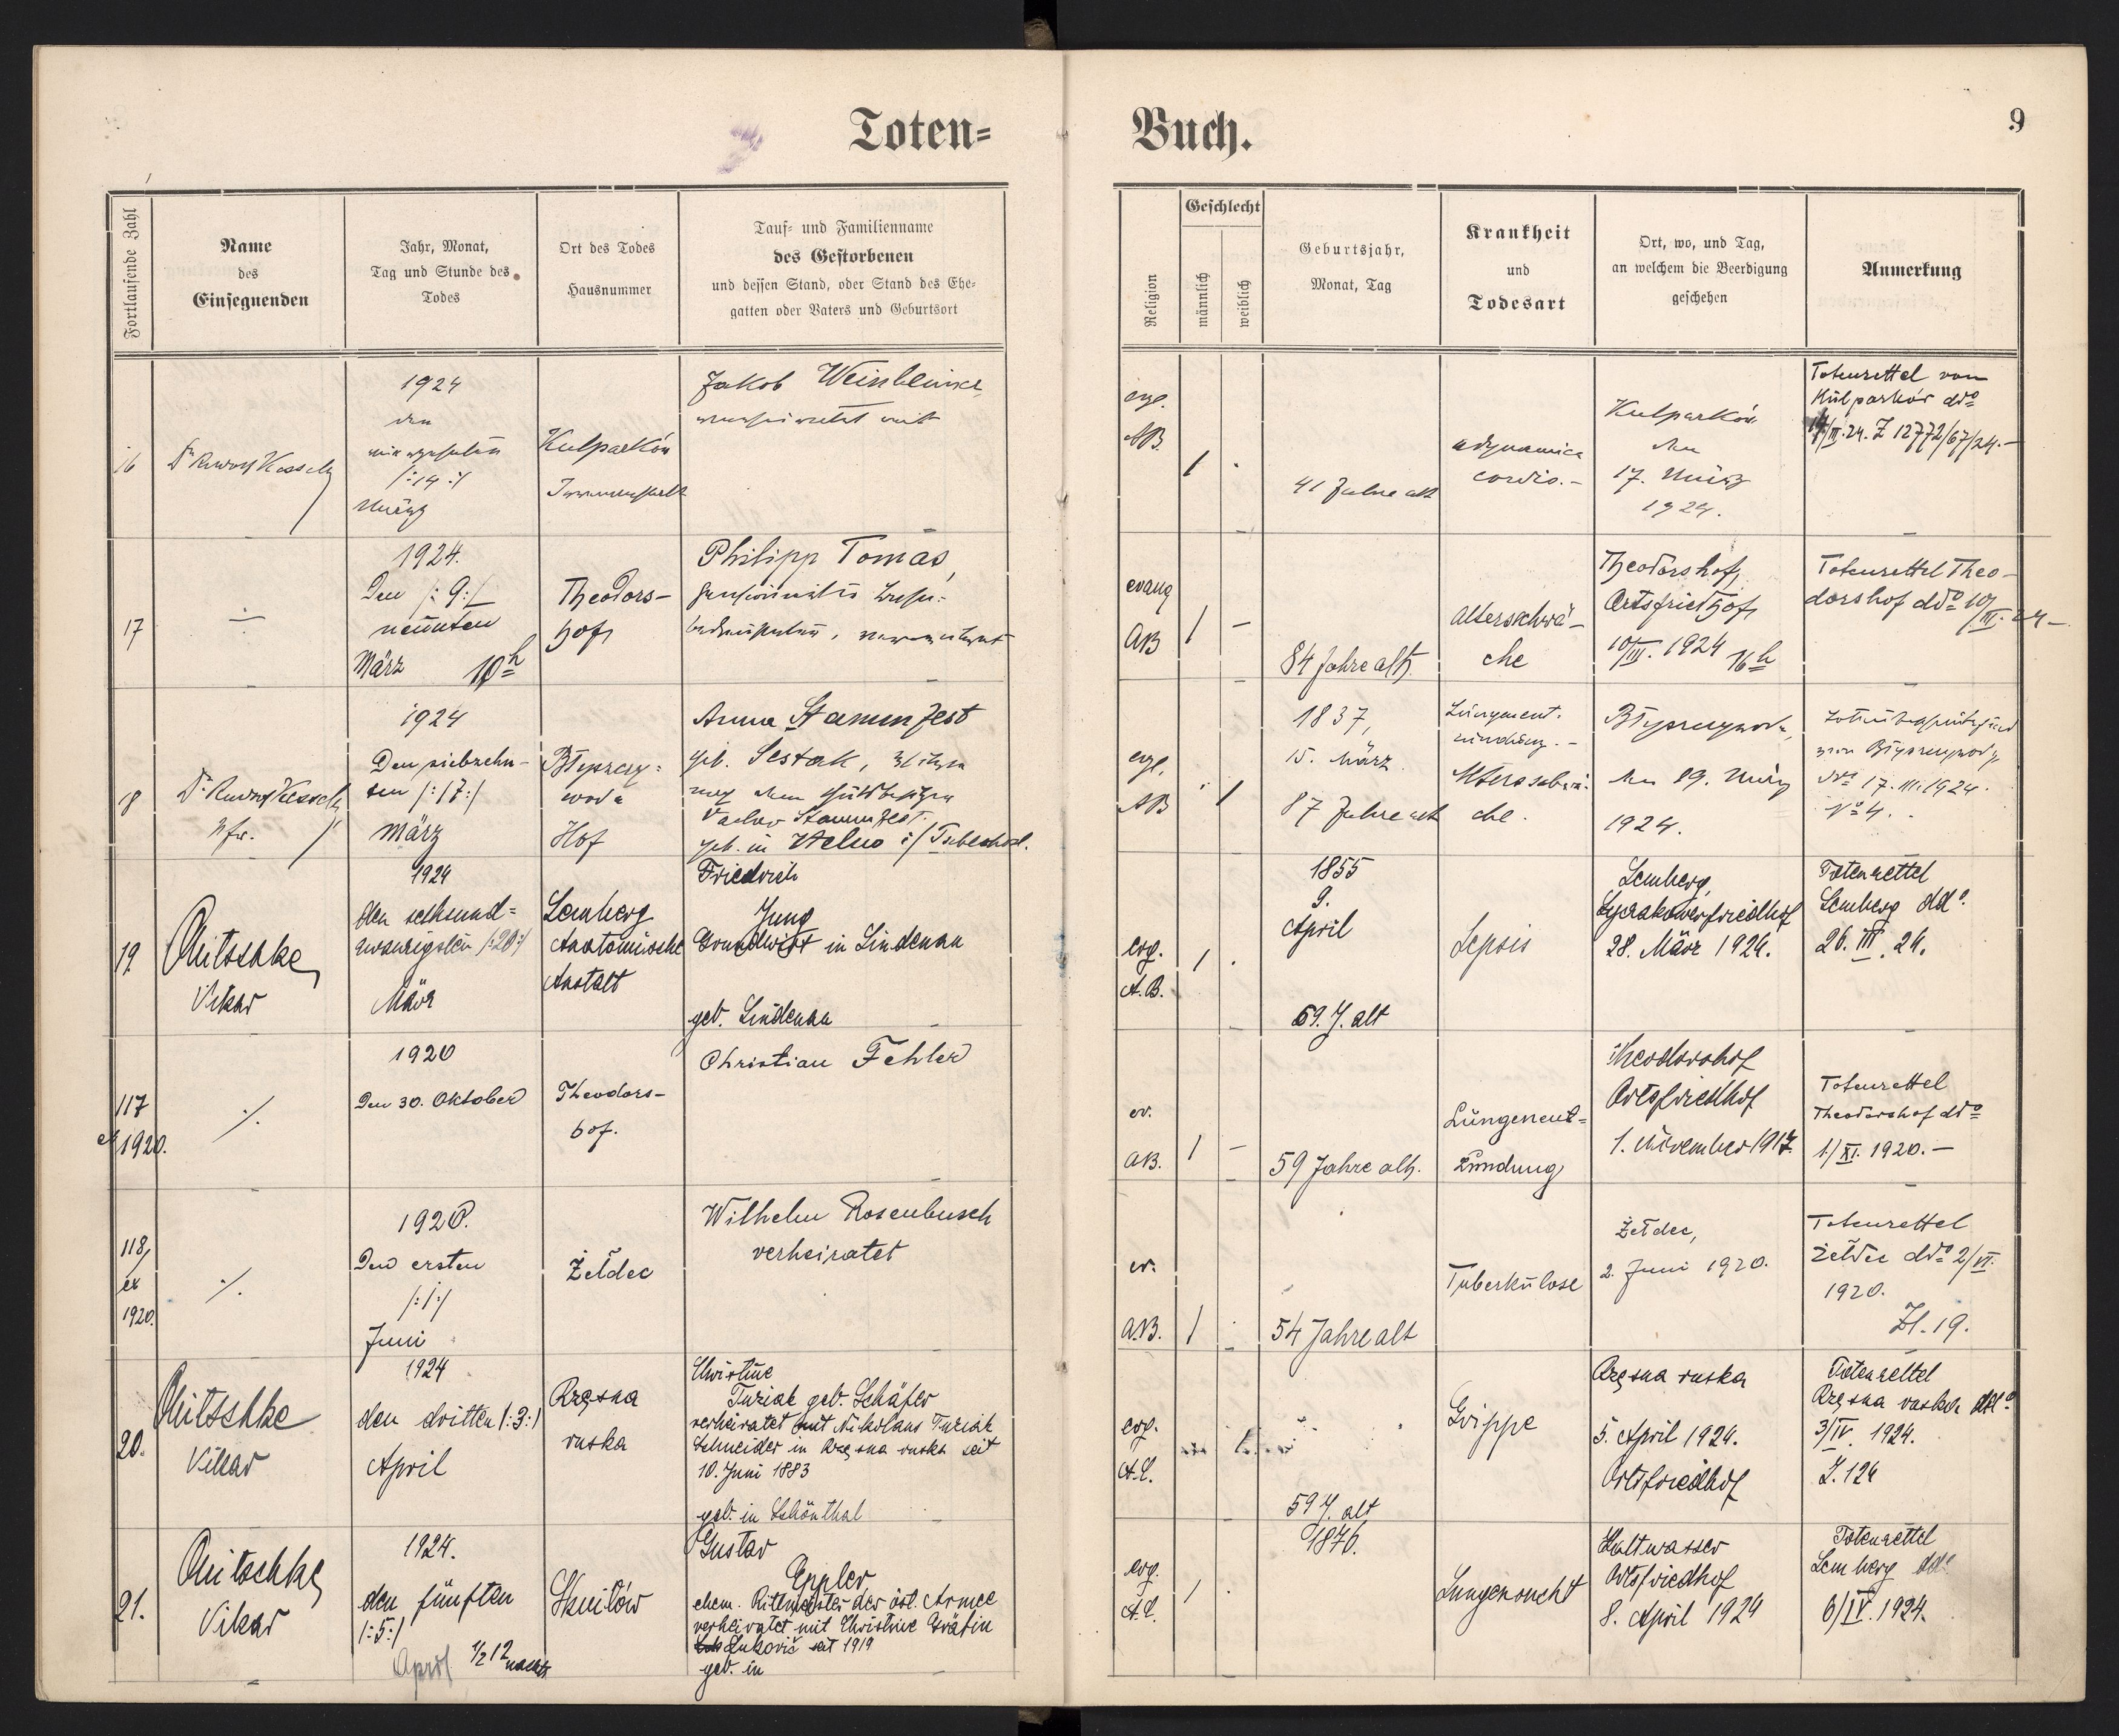 Toten= Buch.
9
Fortlaufende Zahl
Name
des
Einsegnenden
Jahr, Monat,
Tag und Stunde des
Todes
Ort des Todes
Hausnummer
Tauf- und Familienname
des Gestorbenen
und dessen Stand, oder Stand des Ehe-
gatten oder Vaters und Geburtsort
Religion
Geschlecht
männlich
weiblich
Geburtsjahr,
Monat, Tag
Krankheit
und
Todesart
Ort, wo, und Tag,
an welchem die Beerdigung
geschehen
Anmerkung
16
Dr Rudolf Kesselring
1924
den
vierzehnten
/:14:/
März
Kulparków
Irrenanstalt
Jakob
evg.
AB.
/
41 Jahre alt
adynamica
cordis.-
Kulparków
den
17. März
1924.
Totenzettel von
Kulparków ddo
/III.24. Z 12772/67/24.-
17
1924.
Den /:9:/
neunten
März 10h
Theodors-
hof
Philipp Tomas,
evang
AB
/ -
84 Jahre alt
Altersschwä-
che
Theodorshof,
Ortsfriedhof,
10/III. 1924 16h
Totenzettel Theo-
dorshof ddo 10/
III. 24-
18
Dr Rudolf Kesselring
Pfr.
1924
Den siebzehn-
ten /:17:/
März
Hof
Anna Stammfest
geb. Sestak, Witwe
nach dem Gutsbesitzer
Stammfest.
geb. in
evg.
AB
/
1837,
15. März
87 Jahre alt
Lungenent-
zündung.-
Altersschwä-
che.
den 19. März
1924.
ddo 17.III.1924.
No 4.
19.
Nitschke
Vikar
1924
den sechsund=
zwanzigsten /:26:/
März
Lemberg
Anatomische
Anstalt
Friedrich
Jung
Grundwirt in Lindenau
geb. Lindenau
evg.
A.B.
/
1855
9.
April
69. J. alt
Sepsis
Lemberg,
Lyczakowerfriedhof
28. März 1924.
Totenzettel
Lemberg ddo.
26. III. 24.
117
ex 1920.
./.
1920
Den 30. Oktober
Theodors-
hof.
Christian Fehler
ev.
AB.
/ -
59 Jahre alt.
Lungenent=
zündung
Theodorshof
Ortsfriedhof
1. November
Totenzettel
Theodorshof ddo
1./XI. 1920.-
118/
ex
1920.
./.
1920.
Den ersten
/:1:/
Juni
Żełdec
Wilhelm Rosenbusch
verheiratet
ev.
A.B.
/
54 Jahre alt
Tuberkulose
Żełdec,
2. Juni 1920.
Totenzettel
Żełdec ddo 2/VI.
1920.
Zl. 19.
20.
Nitschke
Vikar
1924
den dritten /:3:/
April
Rzęsna
ruska
Christine
Turiak geb. Schäfer
verheiratet mit Nikolaus Turiak
Schneider in Rzęsna ruska seit
10. Juni 1883
geb. in Schönthal
evg.
A.C.
59 J. alt
Grippe
Rzęsna ruska
5. April 1924.
Ortsfriedhof
Totenzettel
Rzęsna ruska ddo
3/IV. 1924.
Z. 124
21.
Nitschke
Vikar
1924.
den fünften
/:5:/
April 1/2 12 nachts
Skniłów
Gustav
Eppler
ehem. Rittmeister der öst. Armee
verheiratet mit Christine Gräfin
seit 1919
geb. in
evg.
A.C.
/
1876.
Lungensucht
Kaltwasser
Ortsfriedhof
8. April 1924
Totenzettel
Lemberg ddo
6/IV. 1924.